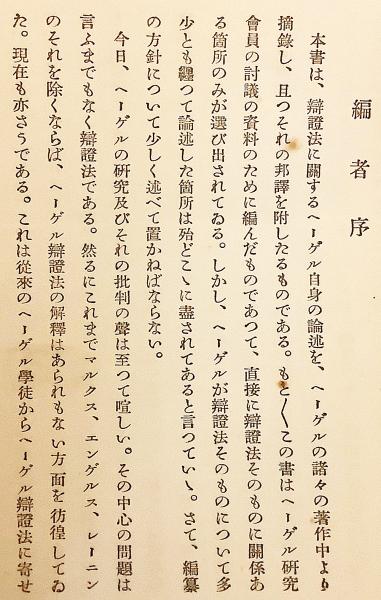 編者序
本書は、辯證法に關するヘーゲル自身の論述を、ヘーゲルの諸々の著作中より
摘錄し、且つそれの邦譯を附したるものである。もと〱この書はヘーゲル研究
會員の討議の資料のために編んだものであつて、直接に辯證法そのものに關係あ
る箇所のみが選び出されてゐる。しかし、ヘーゲルが辯證法そのものについて多
少とも纒つて論述した箇所は殆どこゝに盡されてあると言つていゝ。さて、編纂
の方針について少しく述べて置かねばならない。
今日、ヘーゲルの研究及びそれの批判の聲は至つて喧しい。その中心の問題は
言ふまでもなく辯證法である。然るにこれまでマルクス、エンゲルス、レーニン
のそれを除くならば、ヘーゲル辯證法の解釋はあられもない方面を彷徨してゐ
た。現在も亦さうである。これは從來のヘーゲル學徒からヘーゲル辯證法に寄せ